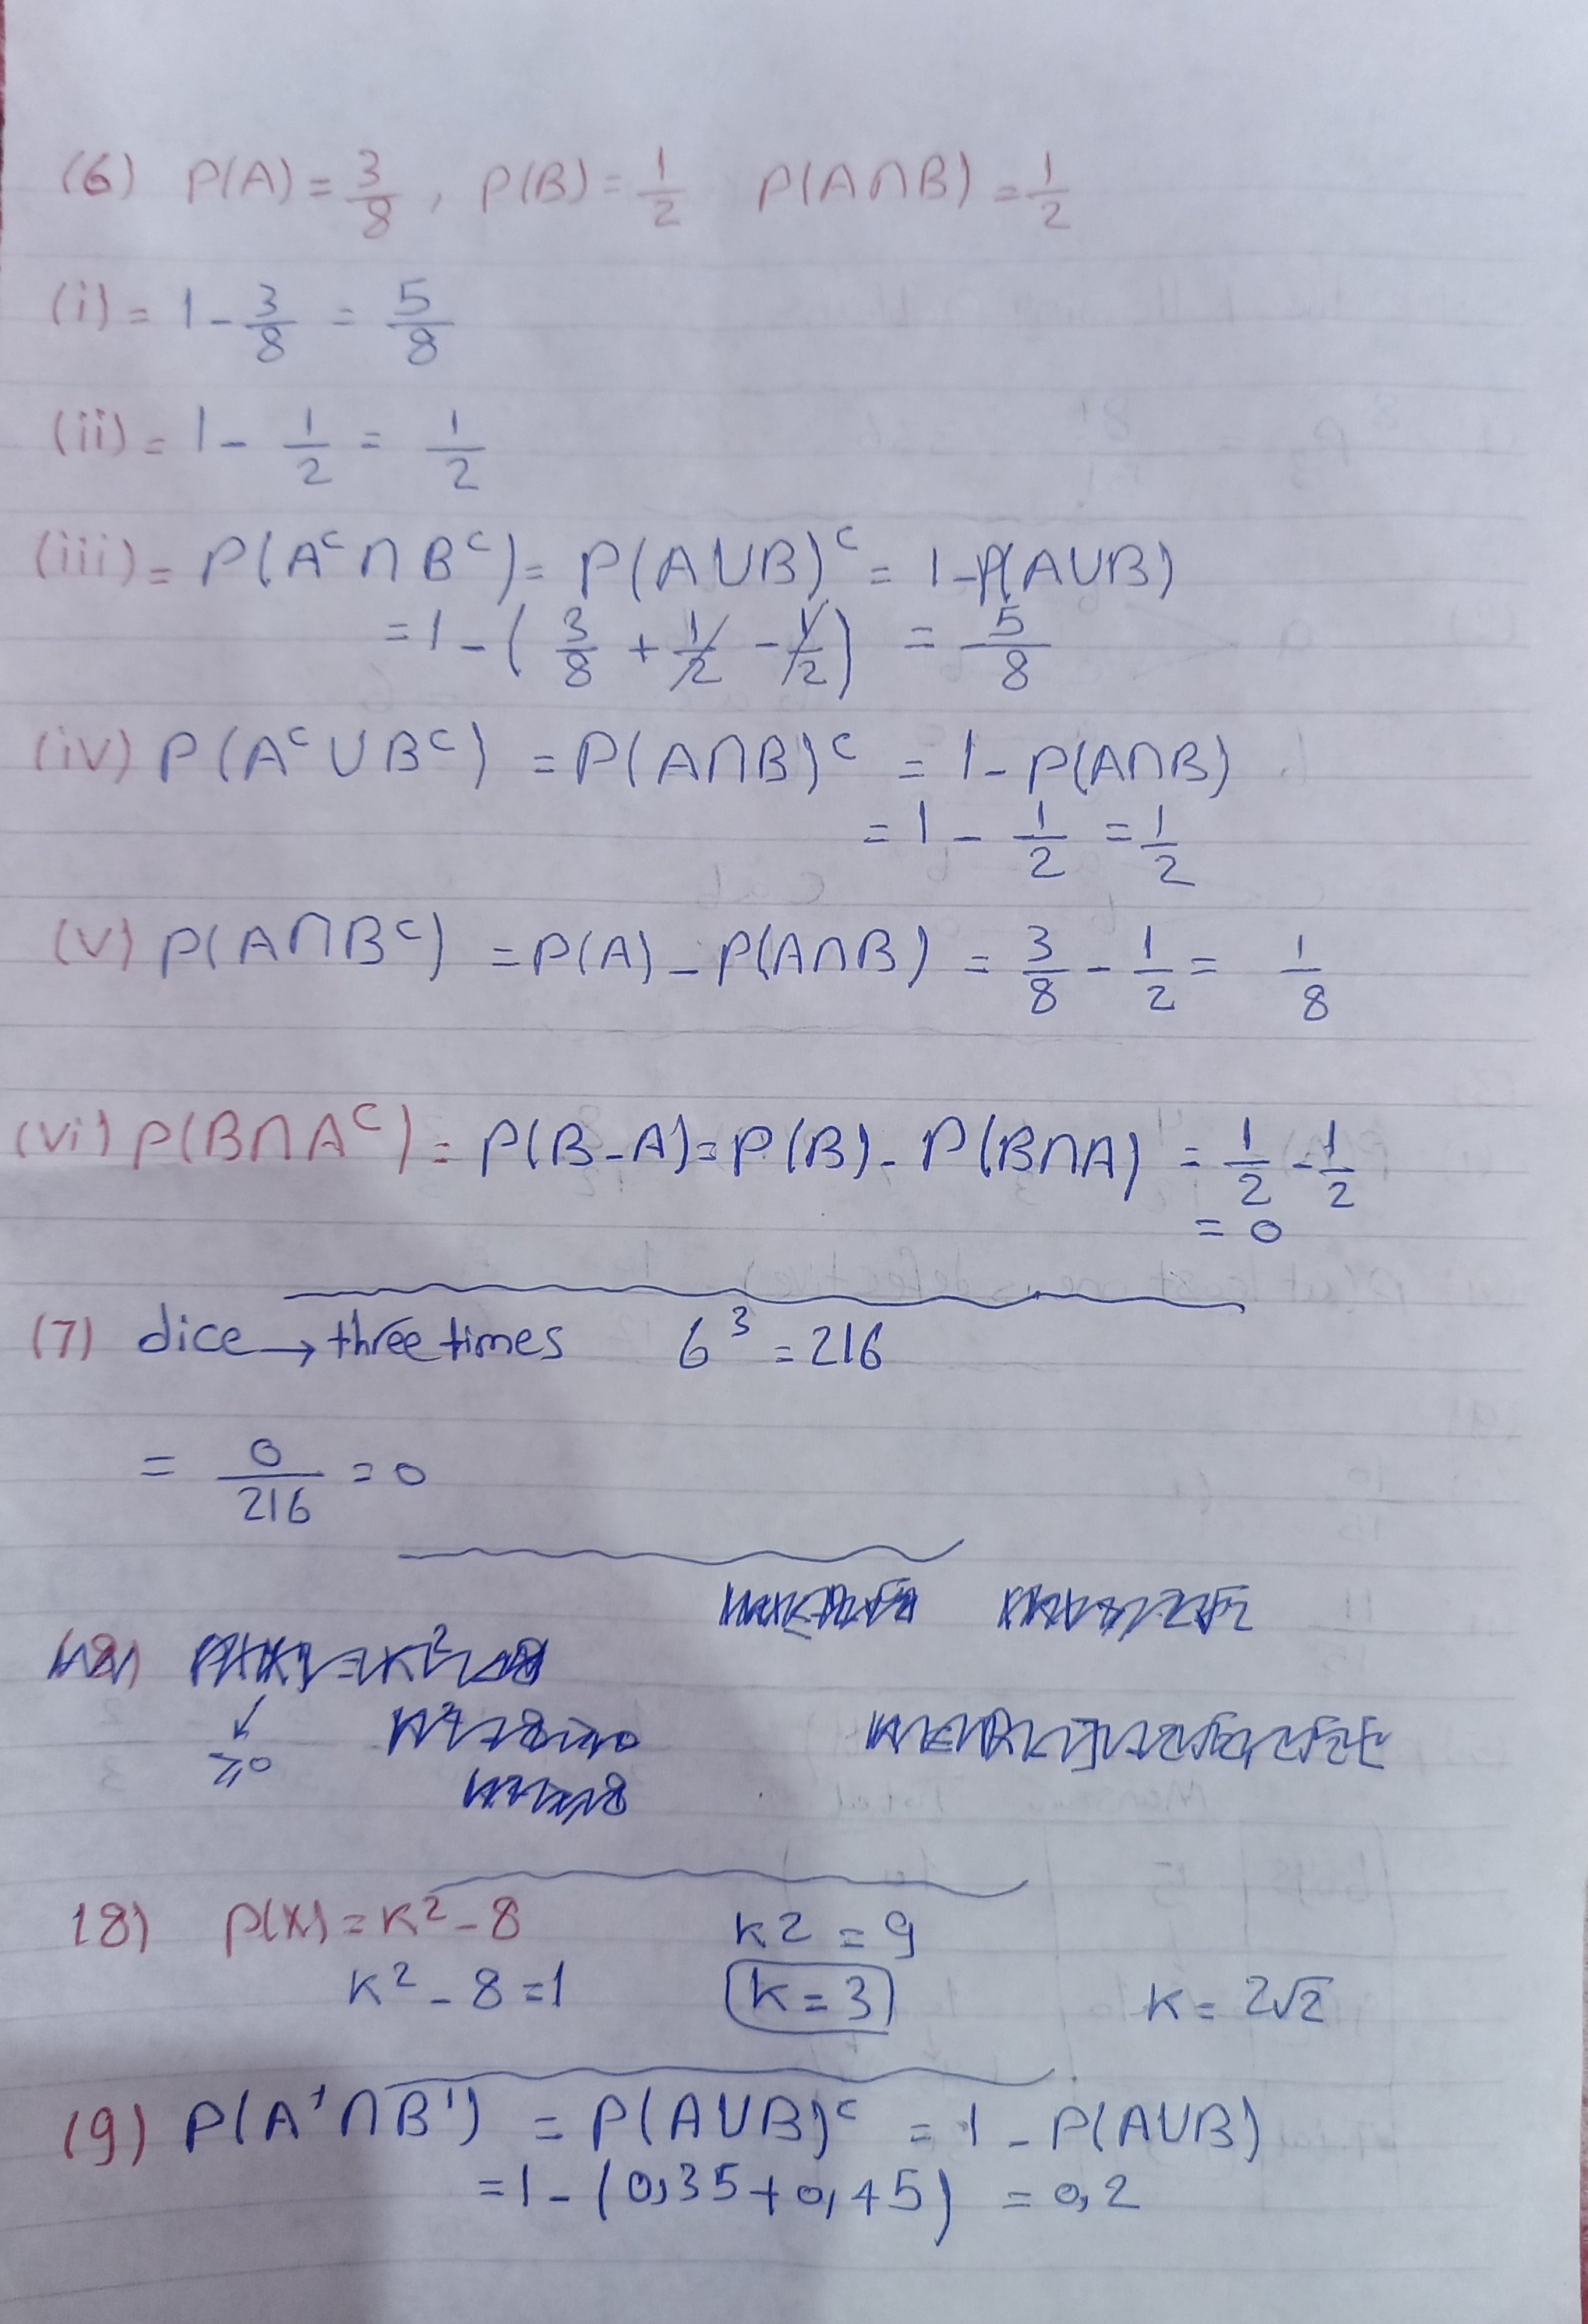 (6) P(A) = 3/8 , P(B) = 1/2 P(A∩B) = 1/2
(i) = 1 - 3/8 = 5/8
(ii) = 1 - 1/2 = 1/2
(iii) = P(Aᶜ∩Bᶜ) = P(A∪B)ᶜ = 1-P(A∪B)
= 1 - (3/8 + 1/2 - 1/2) = 5/8
(iv) P(Aᶜ∪Bᶜ) = P(A∩B)ᶜ = 1 - P(A∩B)
= 1 - 1/2 = 1/2
(v) P(A∩Bᶜ) = P(A) - P(A∩B) = 3/8 - 1/2 = 1/8
(vi) P(B∩Aᶜ) = P(B-A) = P(B) - P(B∩A) = 1/2 - 1/2
= 0
(7) dice → three times 6³ = 216
= 0/216 = 0
≥0
18) P(X) = K² - 8 K2 = 9
K² - 8 = 1 K = 3 K = 2√2
(9) P(A'∩B') = P(A∪B)ᶜ = 1 - P(A∪B)
= 1 - (0,35 + 0,45) = 0,2